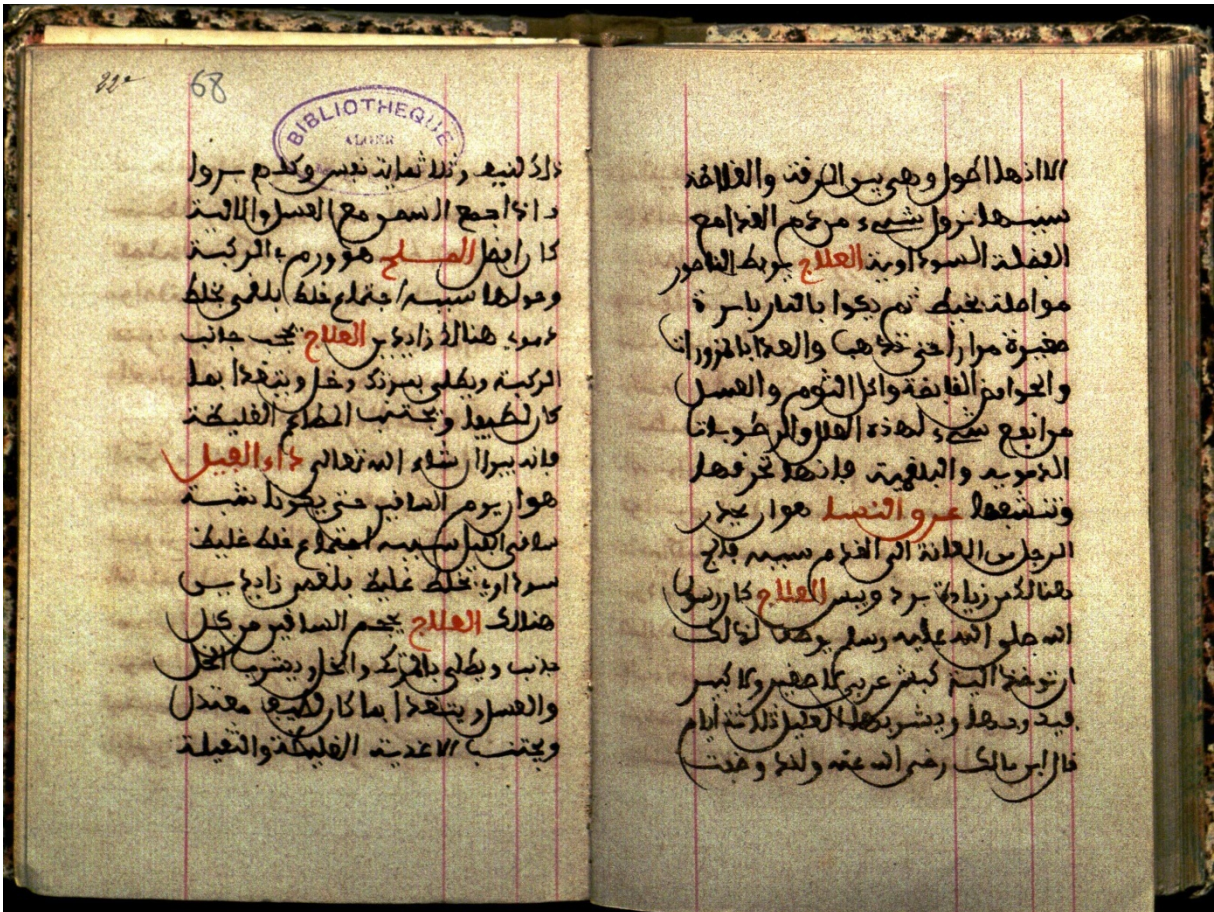 الا انها اطول وهي بين الرقة والغلاظة
سببها نزول شيء من دم الغذا مع
الفضلة السوداوية العلاج يربط الناصور
مواصلة بخيط ثم يكوا بالنار باسرة
صغيرة مرارا حتى تذهب والغذا بالمزورات
والحوامض القابضة واكل الثوم والعسل
من انفع شيء لهذه العلل والرطوبات
الدموية والبلغمية فانها تحرقها
وتنشفها عرو النسا هو ان يخدر
الرجل من العانة الى القدم سببه فالج
هنالك من زيادة برد ويبس العلاج كان رسول
الله صلى الله عليه وسلم يوصف لذالك
ان توخذ الية كبش عربي لا صغير ولا كبير
فيذوبها ويشربها العليل ثلاثة ايام
قال ابن مالك رضي الله عنه ولقد وصفت
22a
68
BIBLIOTHEQUE
ALGER
ذلك لنيف وثلاثماية نفس وكلهم بروا
واذا اجمع السمن مع العسل والالية
كان افضل هو ورم في الركبة
وحولها سببه اجتماع خلط بلغمي بخلط
دموي هنالك زايد من العلاج يحجب جانب
الركبة ويطلى بمرتك وخل ويتغذا بما
كان لطيفا ويجتنب المطاعم الغليظة
فانه يبرا ان شاء الله تعالى داء الفيل
هو ان يورم الساقين حتى يكونا شبه
ساقي الفيل سببه اجتماع خلط غليظ
سوداوي بخلط غليظ بلغمي زايد من
هنالك العلاج يحجم الساقين من كل
جانب ويطلى بالمرتك والخل ويشرب الخل
والعسل ويتغذا بما كان لطيفا معتدل
ويجتنب الاغذية الغليظة والثقيلة